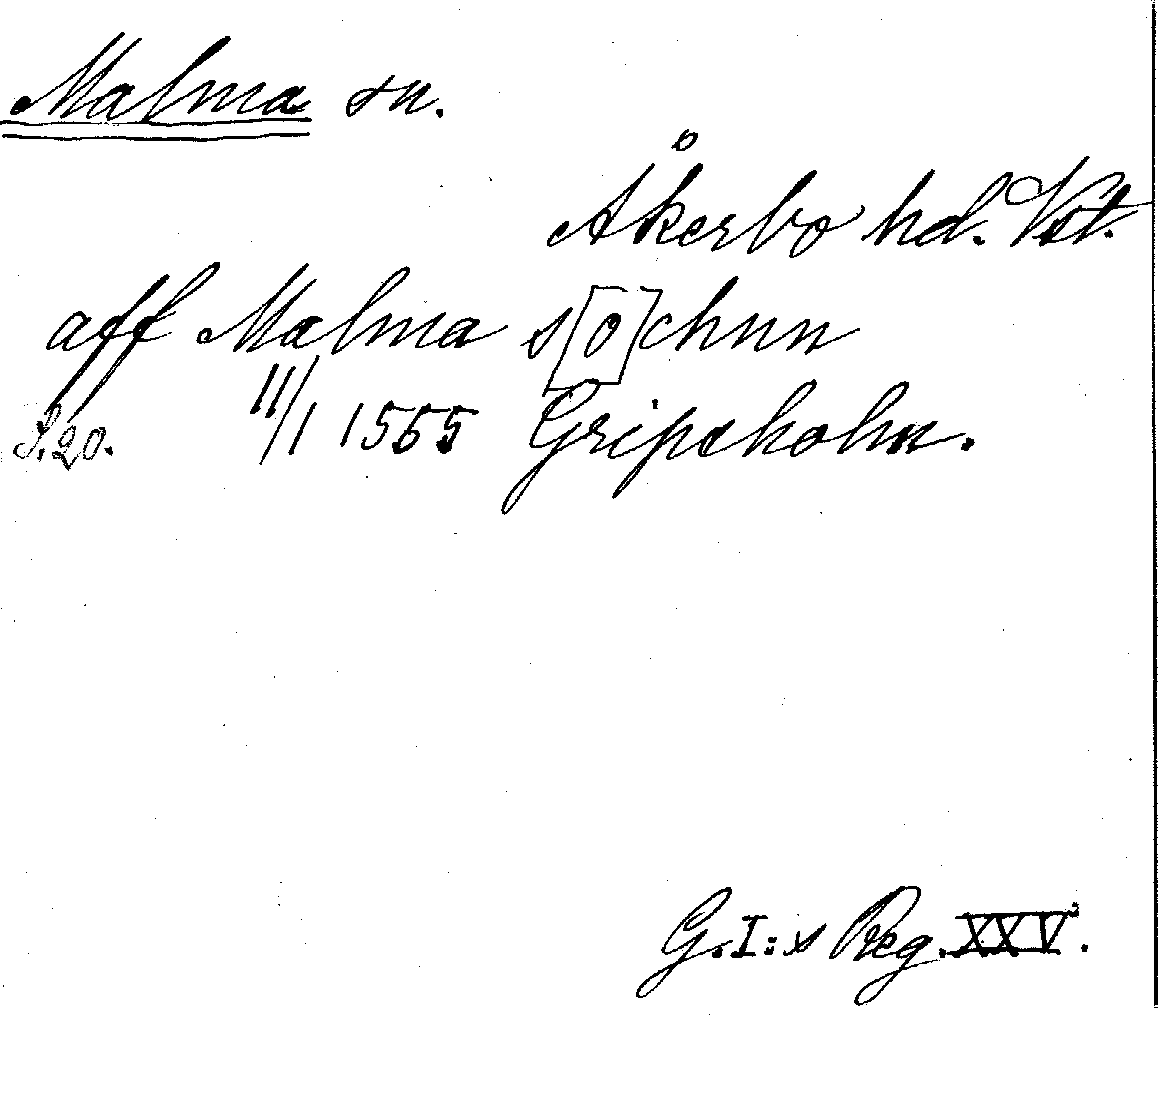 Malma sn.
Åkerbo hd. Vst.
aff Malma s[o]chnn
S. 20. 11/1 1555 Gripsholm.
G. I:s Reg. XXV.